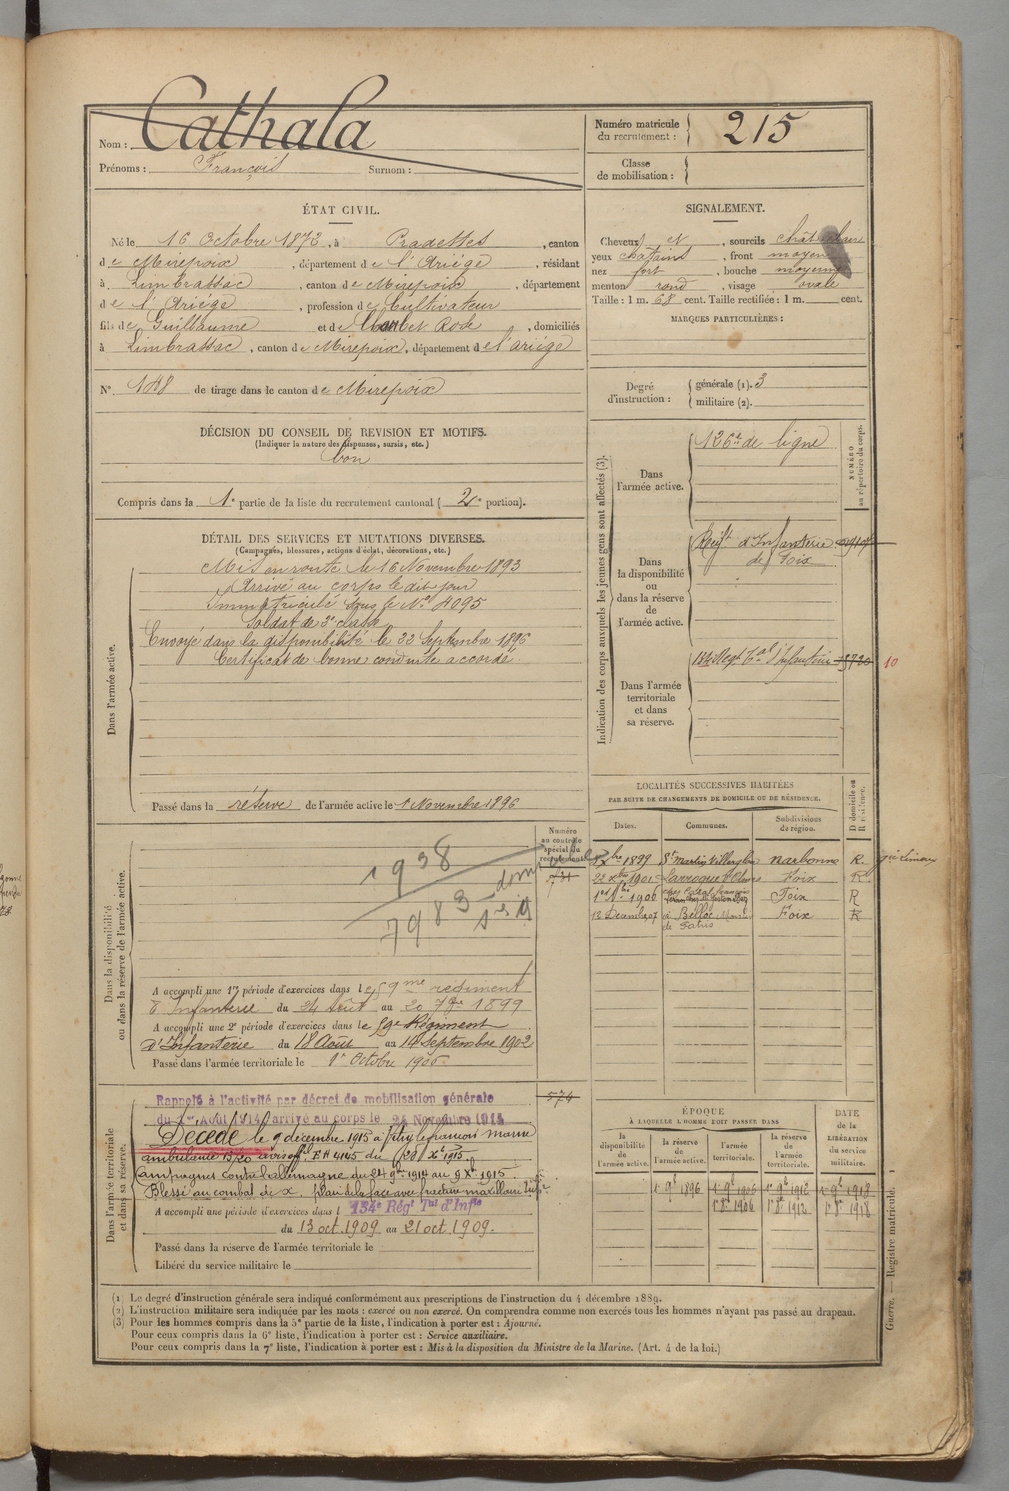 Nom : Cathala
Prénoms : François Surnom :
Numéro matricule du recrutement : 215
Classe de mobilisation :
ÉTAT CIVIL.
Né le 16 Octobre 1872, à Pradettes, canton
de Mirepoix, département de l'Ariège, résidant
à Limbrassac, canton de Mirepoix, département
de l'Ariège, profession de Cultivateur
fils de Guillaume et de Rose, domiciliés
à Limbrassac, canton de Mirepoix, département de l'ariège
N° 148 de tirage dans le canton de Mirepoix
DÉCISION DU CONSEIL DE REVISION ET MOTIFS.
(Indiquer la nature des dispenses, sursis, etc.)
bon
Compris dans la 1e partie de la liste du recrutement cantonal (2e portion).
DÉTAIL DES SERVICES ET MUTATIONS DIVERSES.
(Campagnes, blessures, actions d'éclat, décorations, etc.)
Dans l'armée active.
Mis en route le 16 Novembre 1893
Arrivé au corps le dit jour
Immatriculé sous le No 4095
Soldat de 2e classe
Envoyé dans la disponibilité le 22 Septembre 1896
Certificat de bonne conduite accordé.
Passé dans la réserve de l'armée active le 1 Novembre 1896
Dans la disponibilité
ou dans la réserve de l'armée active.
Numéro
au contrôle
spécial du
recrutement.
1938
7983
A accompli une 1re période d'exercices dans le 59me regiment
d'Infanterie du 24 Août au 20 7bre 1899
A accompli une 2e période d'exercices dans le 59e Régiment
d'Infanterie du 18 Août au 14 Septembre 1902
Passé dans l'armée territoriale le 1er Octobre 1906
Dans l'armée territoriale
et dans sa réserve.
574
Rappelé à l'activité par décret de mobilisation générale
du 1er Août 1914 arrivé au corps le 24 Novembre 1914
Décédé le 9 décembre 1915 à Vitry le françois marne
ambulance 13/20 avis offel EH 4145 du (20) Xe 1915
Campagnes contre l'allemagne du 24 9bre 1914 au 9 Xe 1915
Blessé au combat de X. plaie de la face avec fracture maxillaire
A accompli une période d'exercices dans l 134e Régt Tal d'Infie
du 13 oct. 1909. au 21 oct. 1909.
Passé dans la réserve de l'armée territoriale le
Libéré du service militaire le
SIGNALEMENT.
Cheveux et, sourcils
yeux chatains, front moyen
nez fort, bouche moyenne
menton rond, visage ovale
Taille : 1 m. 68 cent. Taille rectifiée : 1 m. cent.
MARQUES PARTICULIÈRES :
Degré d'instruction :
générale (1). 3
militaire (2).
Indication des corps auxquels les jeunes gens sont affectés (3).
NUMÉRO
au répertoire du corps.
Dans l'armée active.
126e de ligne
Dans la disponibilité ou dans la réserve de l'armée active.
Regt d'Infanterie
de Foix
Dans l'armée territoriale et dans sa réserve.
134 Regt Tal d'Infanterie
10
LOCALITÉS SUCCESSIVES HABITÉES
PAR SUITE DE CHANGEMENTS DE DOMICILE OU DE RÉSIDENCE.
Dates. Communes. Subdivisions de région. D domicile ou R résidence.
Xbre 1899 St Martin Narbonne R.
1901 Larroque d'Olmes Foix R
1er 1906 Foix R
12 Décemb. 07 à Belloc Foix R
ÉPOQUE
À LAQUELLE L'HOMME DOIT PASSER DANS
la disponibilité de l'armée active.
la réserve de l'armée active.
l'armée territoriale.
la réserve de l'armée territoriale.
DATE
de la
LIBÉRATION
du service
militaire.
1 9e 1896 1er 9e 1906 1er 9e 1912 1er 9e 1918
1er 8re 1906 1er 8re 1912 1er 8re 1918
(1) Le degré d'instruction générale sera indiqué conformément aux prescriptions de l'instruction du 4 décembre 1889.
(2) L'instruction militaire sera indiquée par les mots : exercé ou non exercé. On comprendra comme non exercés tous les hommes n'ayant pas passé au drapeau.
(3) Pour les hommes compris dans la 5e partie de la liste, l'indication à porter est : Ajourné.
Pour ceux compris dans la 6e liste, l'indication à porter est : Service auxiliaire.
Pour ceux compris dans la 7e liste, l'indication à porter est : Mis à la disposition du Ministre de la Marine. (Art. 4 de la loi.)
Guerre. — Registre matricule.